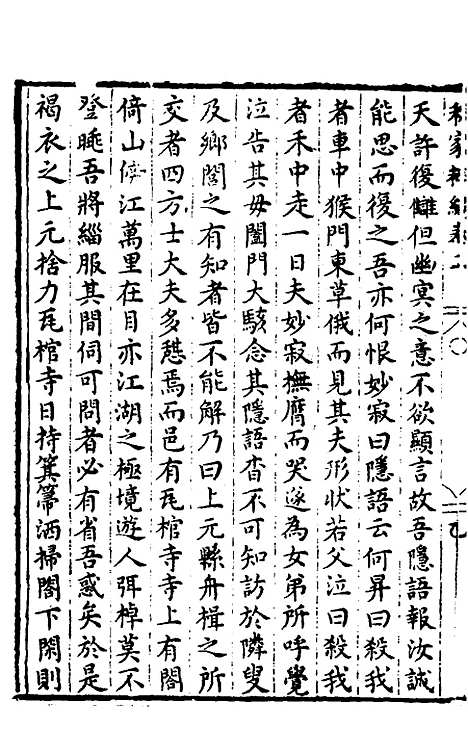 天許復讎但幽冥之意不欲顯言故吾隱語報汝誠
能思而復之吾亦何恨妙寂曰隱語云何昇曰殺我
者車中猴門東草俄而見其夫形狀若父泣曰殺我
者禾中走一日夫妙寂撫膺而哭遂為女弟所呼覺
泣告其母闔門大駭念其隱語杳不可知訪於隣叟
及鄉閭之有知者皆不能解乃曰上元縣舟楫之所
交者四方士大夫多憇焉而邑有瓦棺寺寺上有閣
倚山傍江萬里在目亦江湖之極境遊人弭棹莫不
登眺吾將緇服其間伺可問者必有省吾惑矣於是
褐衣之上元捨力瓦棺寺日持箕箒洒掃閣下閑則